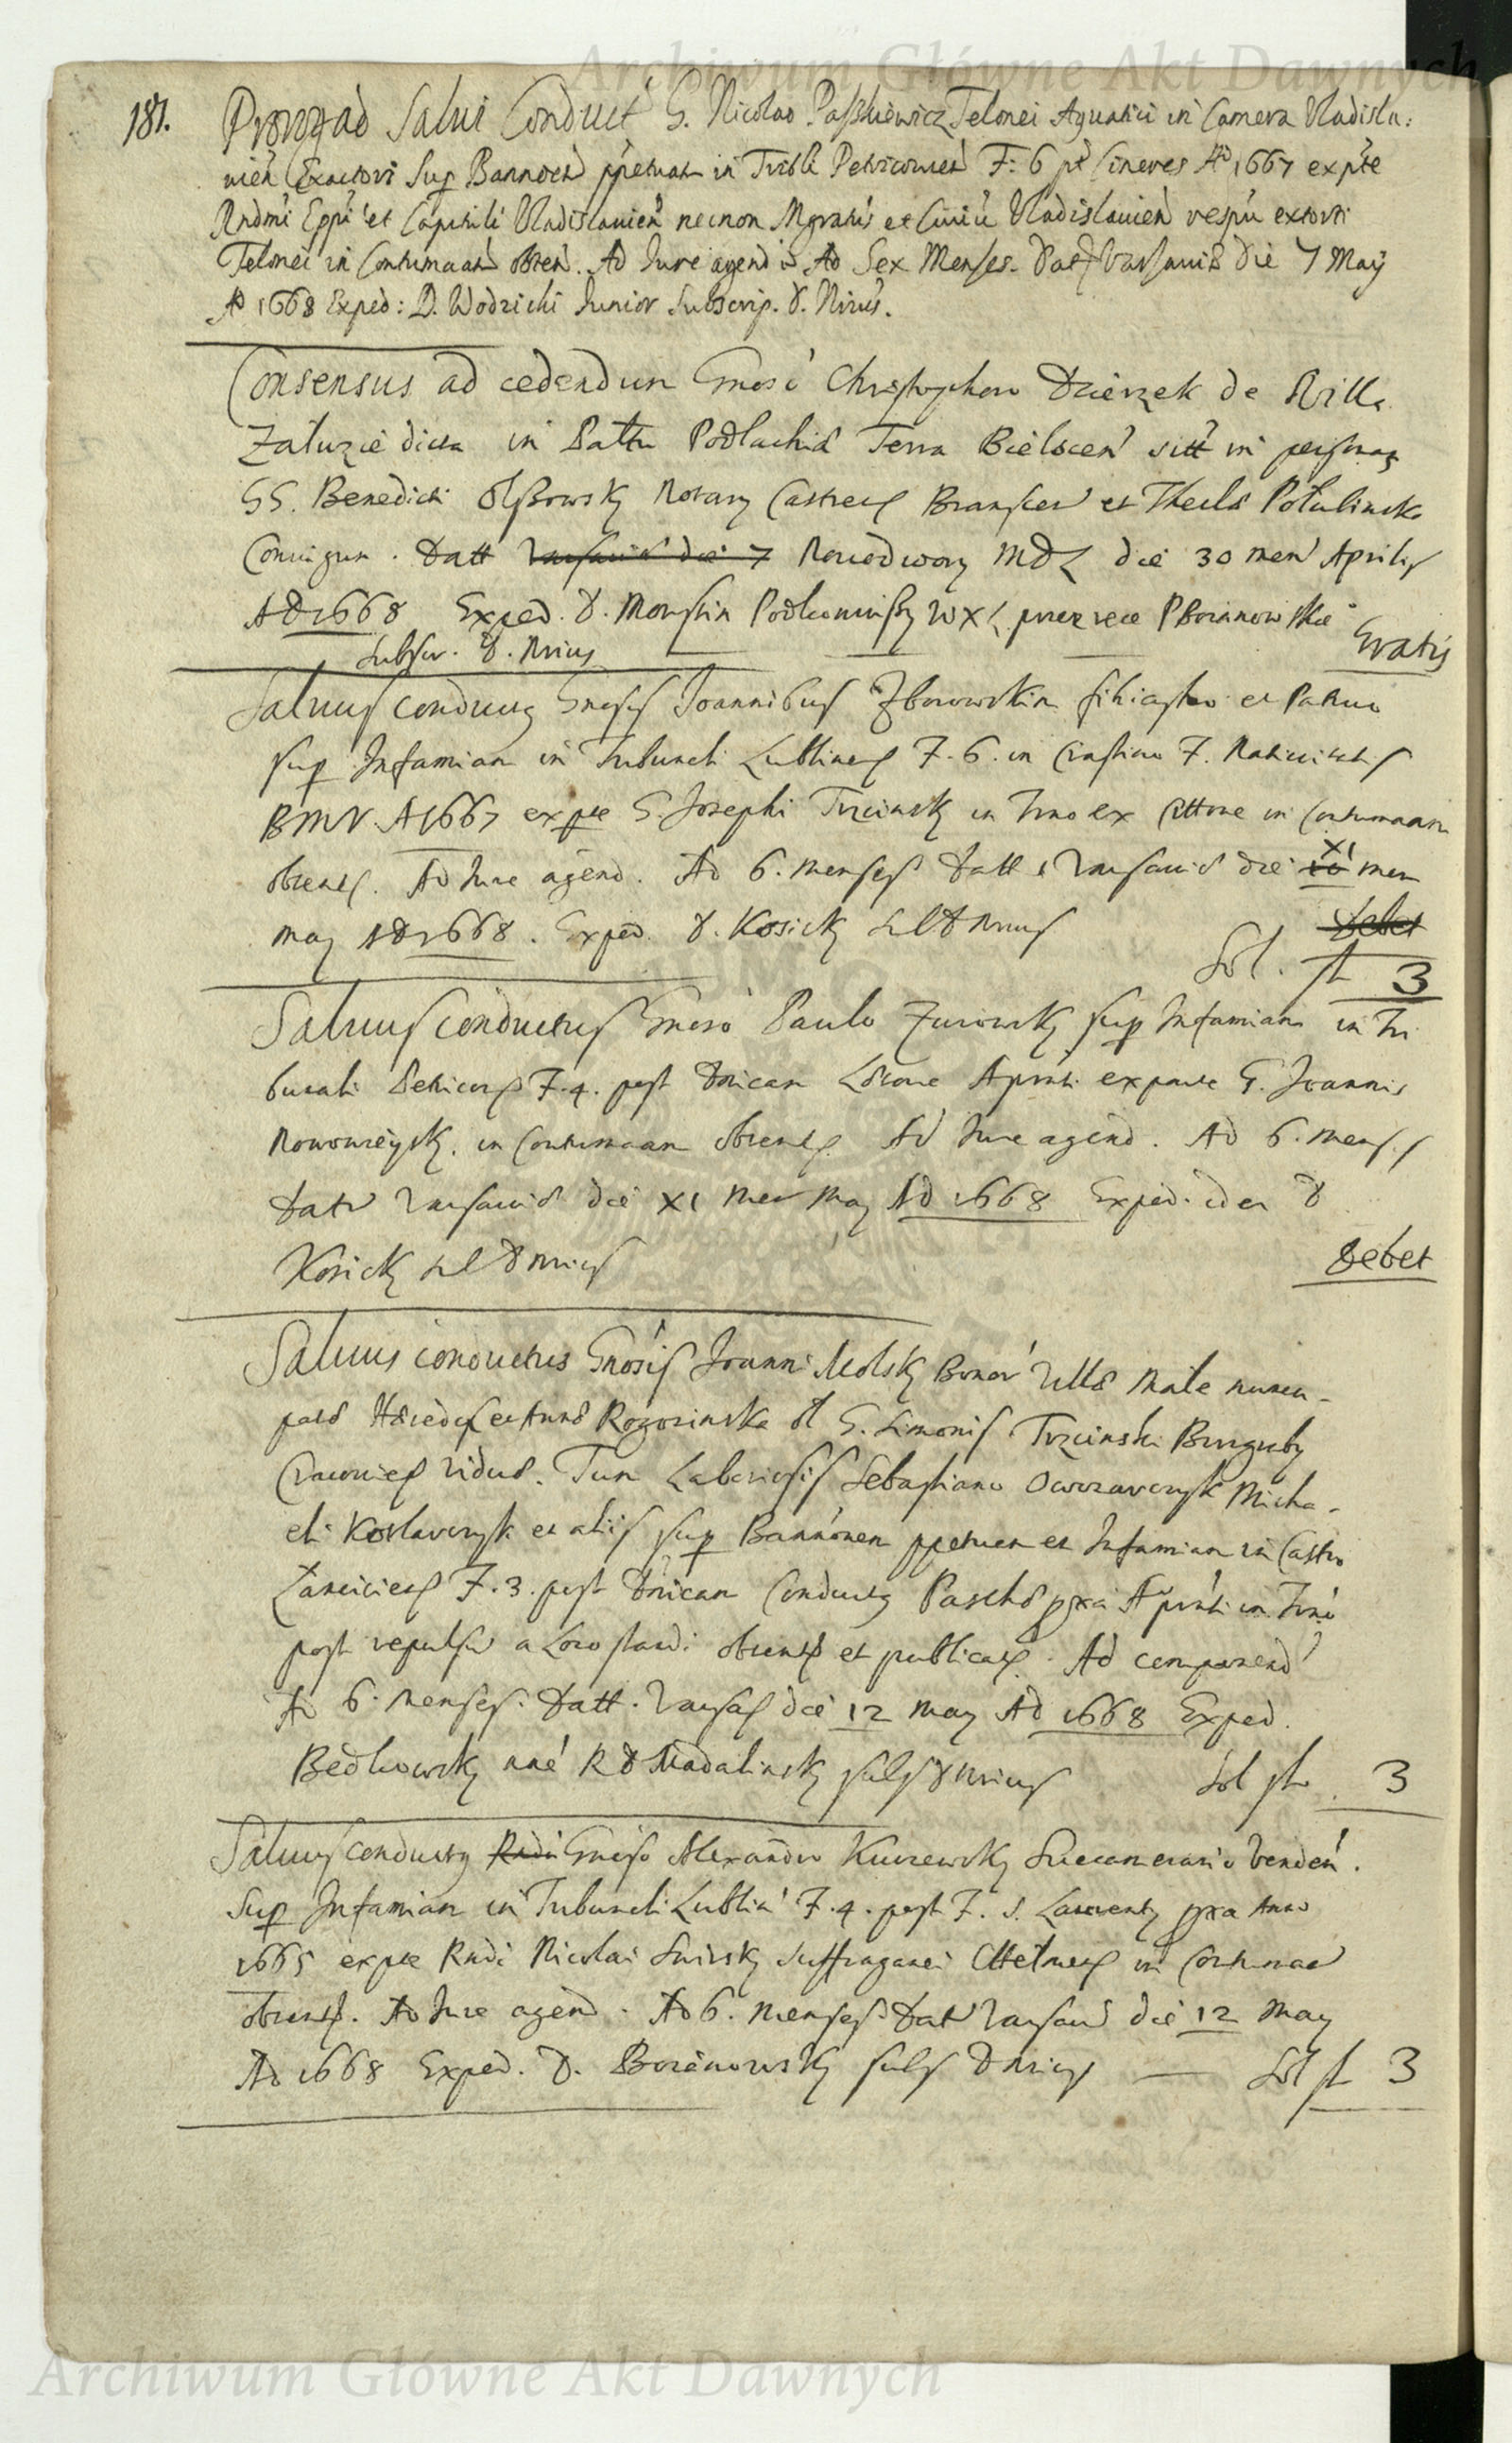 Archiwum Główne Akt Dawnych
181. Prorog ad Salvi Conduct G. Nicolao Paszkiewicz Telonei Aquatici in Camera Vladisla:
vien Exactori Sup Bannoem ppetuam in Tribli Petricovien F: 6 pt Cineres Ao 1667 expte
Rndmi Eppi et Capituli Vladislavien necnon Mgratus et Civiu Vladislavien respu extorti
Telonei in Contumaam obten. Ad Jure agend. Ad Sex Menses. Dat Varsaviae Die 7 Maij
Ao 1668 Exped: D. Wodzicki Junior Subscrip. D. Nrius.
Consensus ad cedendum Gnoso Christophoro Dzierzek de Villa
Załuzie dicta in Pattu Podlachiae Terra Bielscen sitt in personas
GG. Benedicti Olszowsky Notary Castren BransCen et Theclae Potulinska
Coniugum. Datt Varsaviae die 7 Novodwory MDL die 30 men Aprilis
AD 1668 Exped. D. Morstin Podkomorszy WXL przez rece P Boianowskie
Subscr. D. Nrius Gratis
Salvus conductus Gnosis Joannibus Zborowskim filiastro et Patruo
sup Infamiam in Tribunali Lublinen F. 6. in Crastino F. Nativitatis
BMV. A 1667 expte G. Josephi Trzcinsky in Trno ex Cittone in Contumaam
obtent. Ad Jure agend. Ad 6. menses Datt Varsaviae die 10 XI men
May AD 1668. Exped. D. Kosicky SLD Nrius Debet
Sol. fl 3
Salvus Conductus Gnoso Paulo Zurowsky sup Infamiam in Tri
bunali Petricov F. 4. post Dnicam Laetare Apnti exparte G. Joannis
Nowowieysk. in Contumaam obtent. Ad Jure agend. Ad 6. menses
Datt Varsaviae die XI men May AD 1668 Exped. idem D
Kosicky SLD Nrius Debet
Salvus conductus Gnosis Joanni Molsky Bonor Villae Male nuncu-
patae Haeredi et Annae Rogozinska ol G. Simonis Trzcinski Burgraby
Cracovien viduae. Tum Laboriosis Sebastiano Owczarczyk Micha-
eli Kozlarczyk et aliis sup Bannonem ppetuem et Infamiam in Castro
Lanciciens F. 3. post Dnicam Conductus Paschae pxa Apnti in Trno
post repulsa a Loco standi obtent et publicat. Ad comparend
Ad 6. menses. Datt. Varsav die 12 May AD 1668 Exped.
Bedkowsky nne RD Madalinsky subs D Nrius Sol fl. 3
Salvus Conductus Rndi Gnoso Alexandro Kurzewsky Succamerario Venden.
Sup Infamiam in Tribunali Lublin F. 4. post F. S. Laurenty pxa Anno
1665 expte Rndi Nicolai Swirsky Suffraganei Chelmen in Contumaa
obtent. Ad Jure agend. Ad 6. menses Dat Varsav die 12 May
AD 1668 Exped. D. Boianowsky subs D Nrius Sol fl 3
Archiwum Główne Akt Dawnych